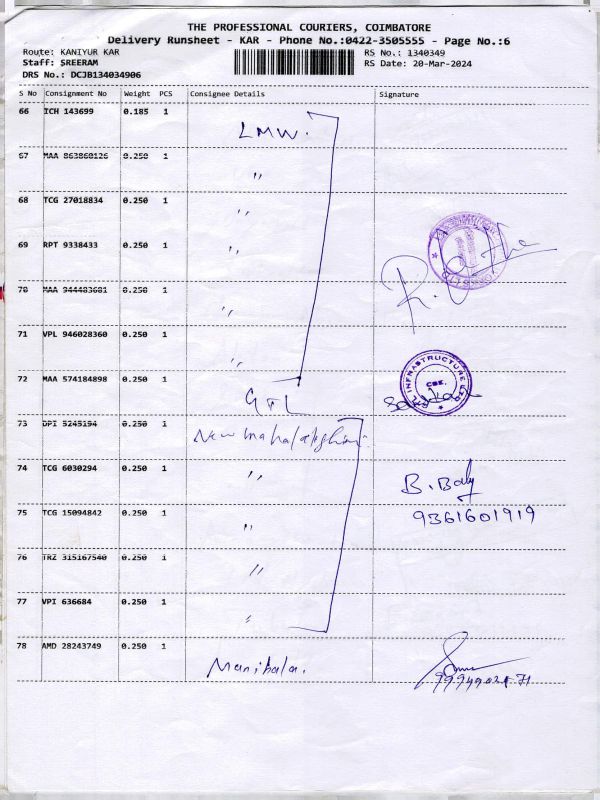 THE PROFESSIONAL COURIERS, COIMBATORE
Delivery Runsheet - KAR - Phone No.:0422-3505555 - Page No.:6
Route: KANIYUR KAR
RS No.: 1340349
Staff: SREERAM
RS Date: 20-Mar-2024
DRS No.: DCJB134034906
S No Consignment No Weight PCS Consignee Details Signature
66 ICH 143699 0.185 1 LMW.
67 MAA 863860126 0.250 1 "
68 TCG 27018834 0.250 1 "
69 RPT 9338433 0.250 1 "
70 MAA 944483681 0.250 1 "
71 VPL 946028360 0.250 1 "
72 MAA 574184898 0.250 1 GTL
INFRASTRUCTURE
CBE.
73 DPI 5245194 0.250 1 New
74 TCG 6030294 0.250 1 " B. Baly
75 TCG 15094842 0.250 1 " 9361601919
76 TRZ 315167540 0.250 1 "
77 VPI 636684 0.250 1 "
78 AMD 28243749 0.250 1 Manibala.